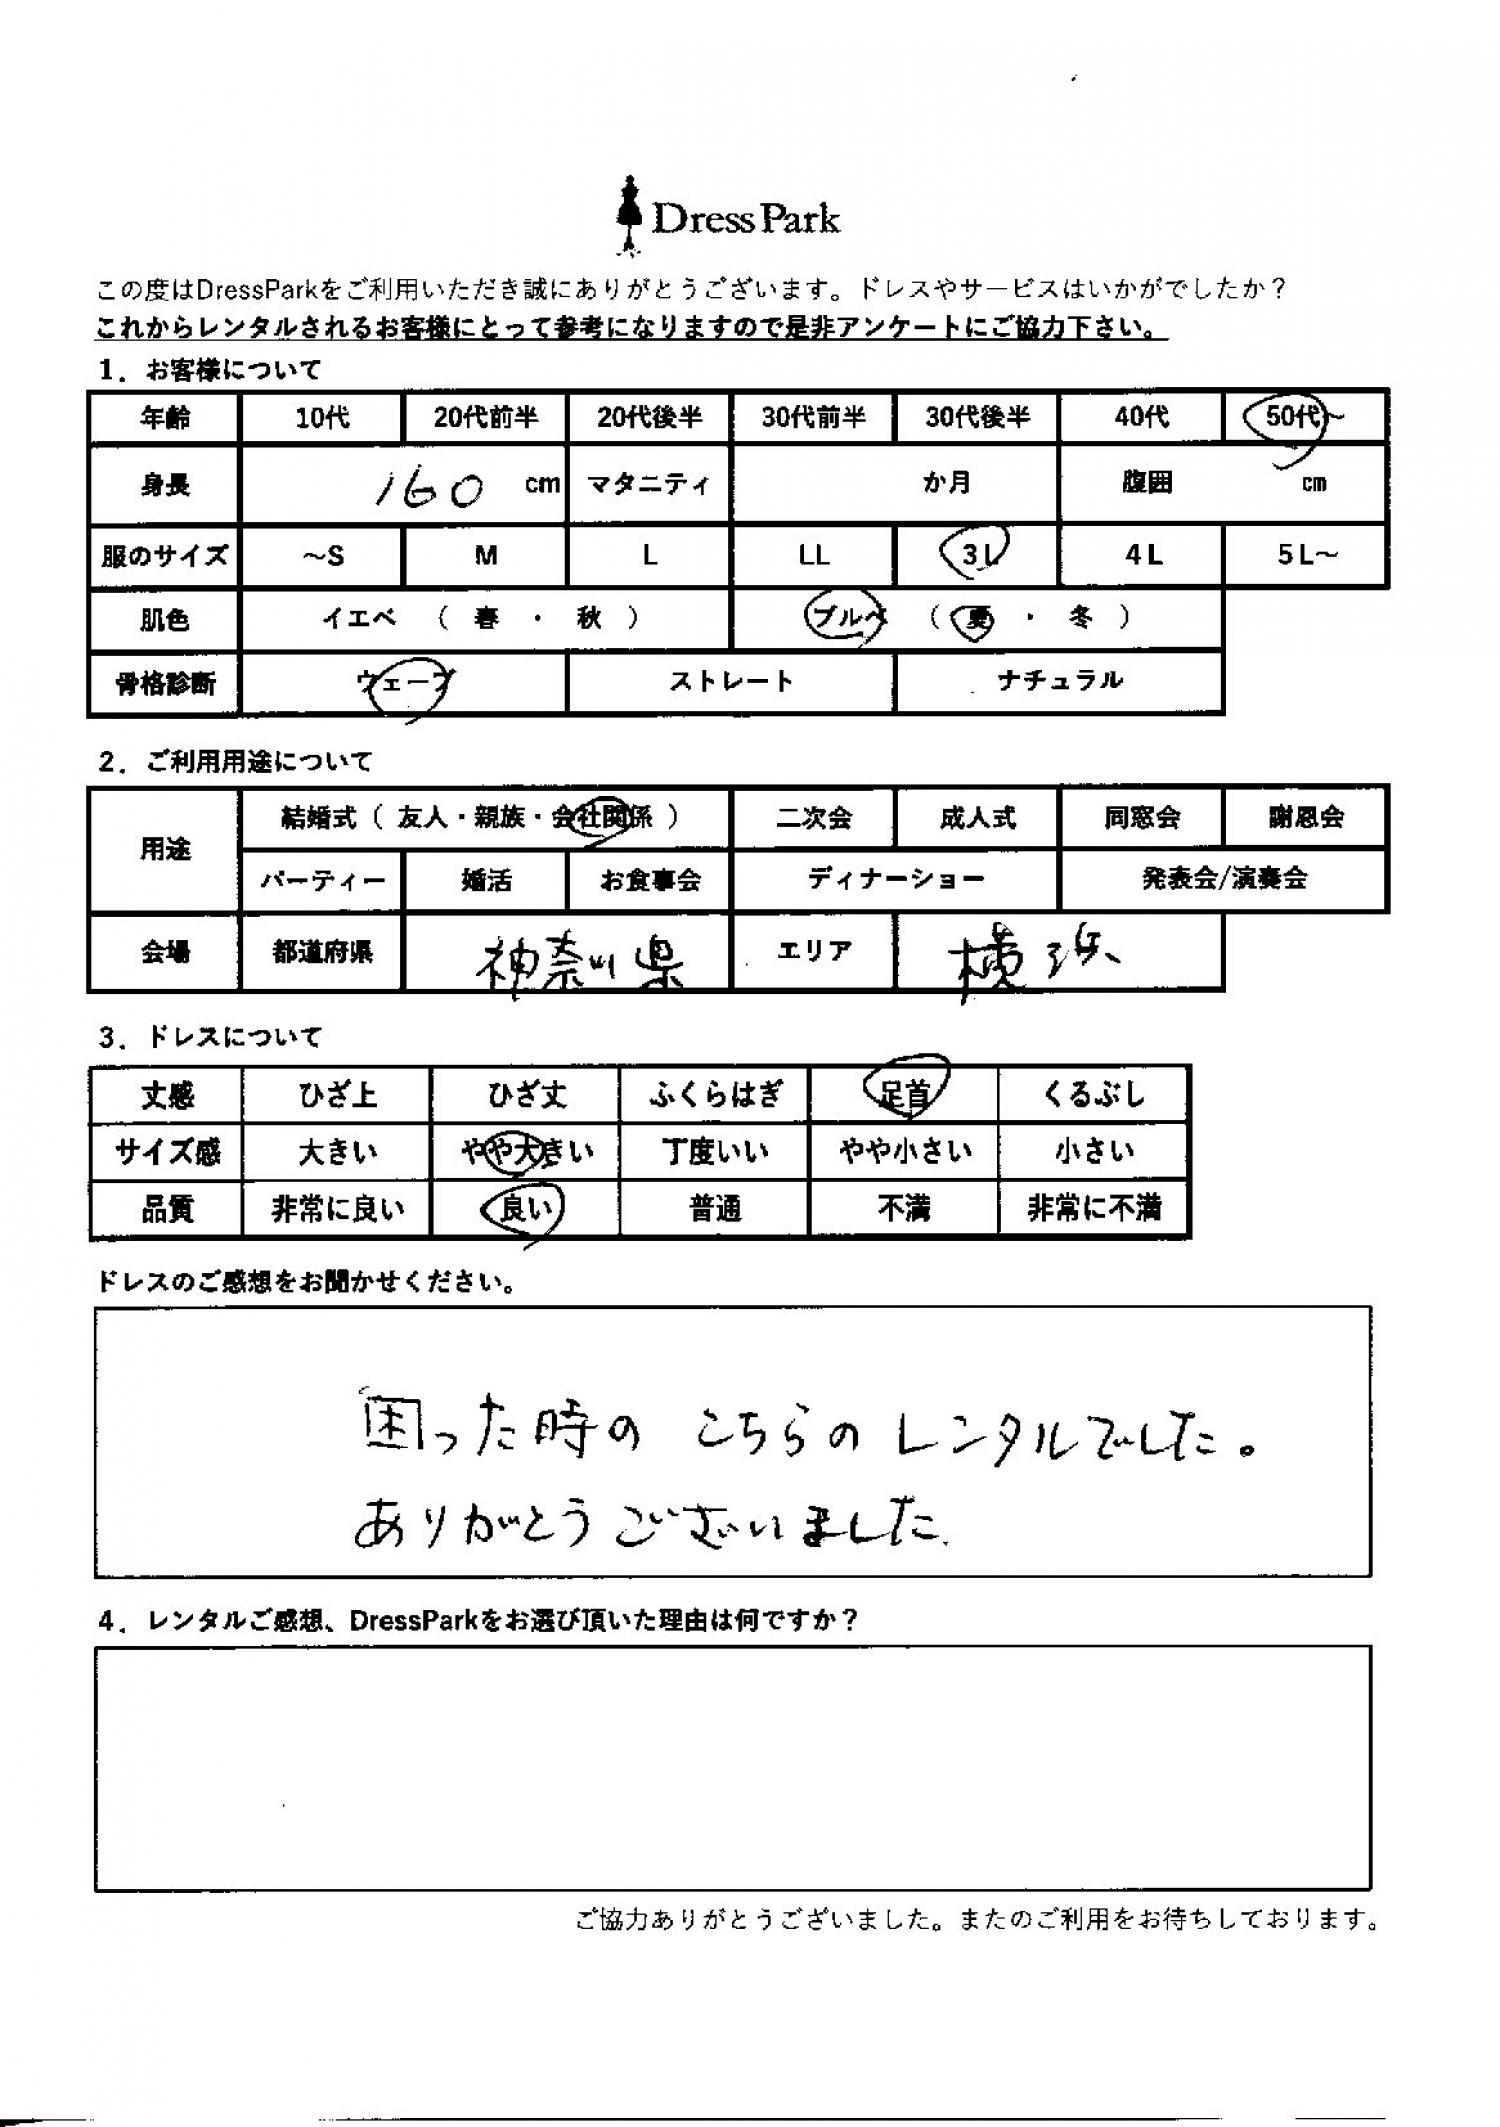 DressPark
この度はDressParkをご利用いただき誠にありがとうございます。ドレスやサービスはいかがでしたか？
これからレンタルされるお客様にとって参考になりますので是非アンケートにご協力下さい。
1．お客様について
年齢 10代 20代前半 20代後半 30代前半 30代後半 40代 50代～
身長 160 cm マタニティ か月 腹囲 cm
服のサイズ ～S M L LL 3L 4L 5L～
肌色 イエベ （ 春 ・ 秋 ） ブルベ （ 夏 ・ 冬 ）
骨格診断 ウェーブ ストレート ナチュラル
2．ご利用用途について
用途 結婚式（ 友人・親族・会社関係 ） 二次会 成人式 同窓会 謝恩会
パーティー 婚活 お食事会 ディナーショー 発表会/演奏会
会場 都道府県 神奈川県 エリア 横浜
3．ドレスについて
丈感 ひざ上 ひざ丈 ふくらはぎ 足首 くるぶし
サイズ感 大きい やや大きい 丁度いい やや小さい 小さい
品質 非常に良い 良い 普通 不満 非常に不満
ドレスのご感想をお聞かせください。
困った時の こちらの レンタルでした。
ありがとうございました.
4．レンタルご感想、DressParkをお選び頂いた理由は何ですか？
ご協力ありがとうございました。またのご利用をお待ちしております。